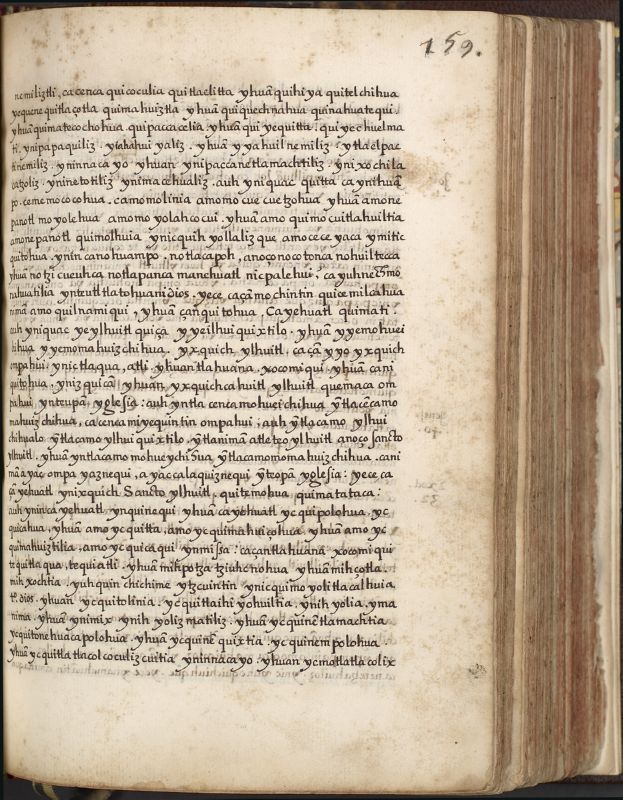 159.
nemiliztli, ca cenca quicoculia quitlaelitta yhuā quihiya quitelchihua
yequene quitlaçotla quimahuiztla yhuā quiquechnahua quinahuatequi.
yhuā quimatecochohua. quipaccacelia. yhuā qui yequitta. qui yec huelma
ti. ynipapaquiliz. yiahahuiyaliz. yhuā yyahuilnemiliz. ytlaelpac
tinemiliz. yninnacayo yhuan ynipaccanetlamachtiliz. ynixochila
yninetotiliz ynimacehualiz. auh yniquac quitta ca ynihuā
po. ceme mococohua. camomolinia amomo cuecuetzohua. yhuā amone
panotl moyolehua amomo yolahcocui. yhuā amo quimocuitlahuiltia
amonepanotl quimolhuia ynicquih yollalizque amo cece yaca ymitic
quitohua. ynin canohuampo. notlacapoh, anoço nocotonca nohuiltecca
yhuā notzicueuhca notlapanca manchuatl nicpalehui, ca yuhnechmo
nahuatilia ynteutl tlatohuani dios. yece, caçāmo chintin quicemilcahua
nimā amo quilnamiqui, yhuā çanquitohua, Ca yehuatl quimati.
auh yniquac ye ylhuitl quiça yyeilhuiquixtilo. yhuā yyemohuei
chihua yyemomahuizchihua. yxquich ylhuitl, ca çā yyo yxquich
ompahui. ynic tlaqua, atli. yhuan tlahuana. xocomiqui yhuā cani
quitohua, yniz quicā yhuan, yxquichcahuitl ylhuitl quemaca om
pahui ynteupā, yglesia: auh yntla cenca mohueichihua ȳtlacēcamo
mahuizchihua, ca cenca miyequintin ompahui; auh ȳtlacamo ylhui
chihualo ȳtlacamo ylhuiquixtilo. ȳtlanimā atleipo ylhuitl anoço sancto
ylhuitl. yhuā yntlacamo mohueychihua ȳtlacamomomahuizchihua. cani
mā ayac ompa yaznequi, ayac calaquiznequi ȳteopā yglesia: yece ca
çā yehuatl ynixquich Sancto ylhuitl, quitemohua, quimatataca:
auh ynincayehuatl ynquinequi yhuā ca yehuatl yc quipolohua, yc
quicahua, yhuā amo yc quitta, amo yc quimahuiçohua. yhuā amo yc
quimahuiztilia, amo yc quicaqui ynmissa: caçantlahuana xocomiqui
tequitlaqua, tequiatli. yhuā mihpotza tziuhcnohua, yhuā mihçotla.
mihxochtia. yuhquin chichime ytzcuintin ynicquimoyolitlacalhuia
to. dios. yhuan yc quitolinia. yc quitlaihiyohuiltia. ynih yolia. yma
nima. yhuā ynimix ynih yolizmatiliz. yhuā yc quinētlamachtia
yc quitonehuaca polohua. yhuā yc quinēquixtia. yc quinempolohua.
yhuā yc quitlatlacolcocolizcuitia yninnacayo: yhuan yc motlatlacolix